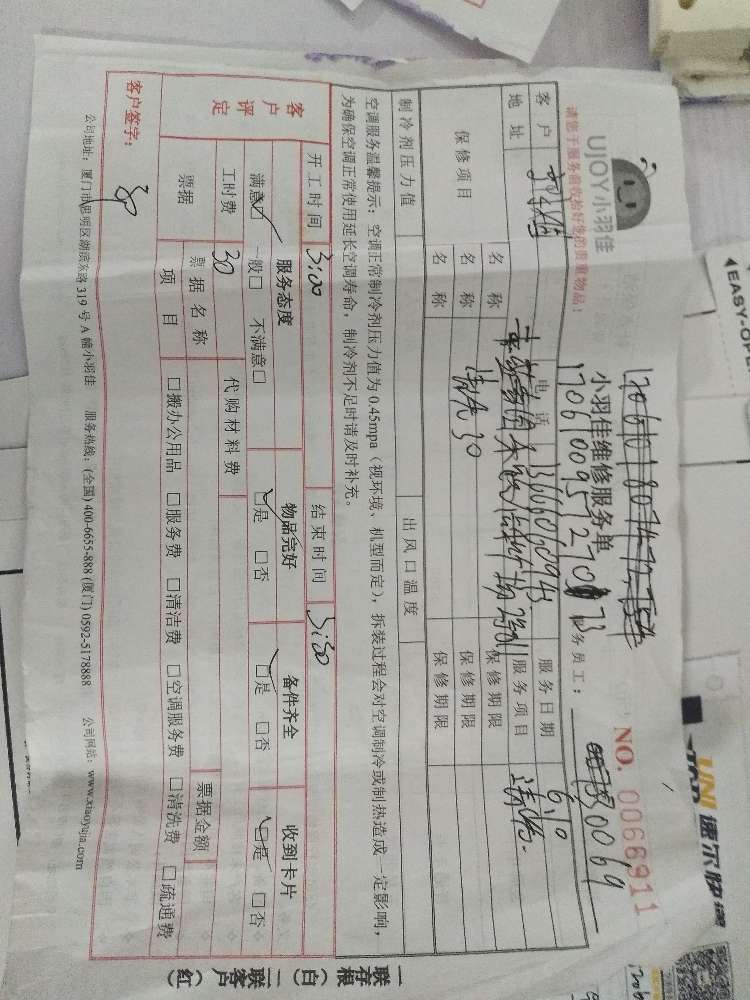 UJOY小羽佳
请您于服务前收拾好您的贵重物品!
小羽佳维修服务单
NO. 0068911
务员工:
0069
客户
电话
服务日期
6/10
地址
服务项目
清洗
保修项目
名称
清洗30
保修期限
名称
保修期限
名称
保修期限
制冷剂压力值
出风口温度
空调服务温馨提示:空调正常制冷剂压力值为0.45mpa(视环境、机型而定),拆装过程会对空调制冷或制热造成一定影响,
为确保空调正常使用延长空调寿命,制冷剂不足时请及时补充。
开工时间
3:00
结束时间
3:30
客户评定
服务态度
物品完好
备件齐全
收到卡片
满意□ 一般□ 不满意□
□是 □否
□是 □否
□是 □否
工时费
30
代购材料费
票据
票据名称
票据金额
项目
□搬办公用品 □服务费 □清洁费 □空调服务费 □清洗费 □疏通费
客户签字:
公司地址:厦门市思明区湖滨东路319号A幢小羽佳 服务热线:(全国)400-6655-888 (厦门)0592-5178888 公司网站:www.xiaoyujia.com
一联存根(白)二联客户(红)
EASY-OPE
UNI 速尔快递